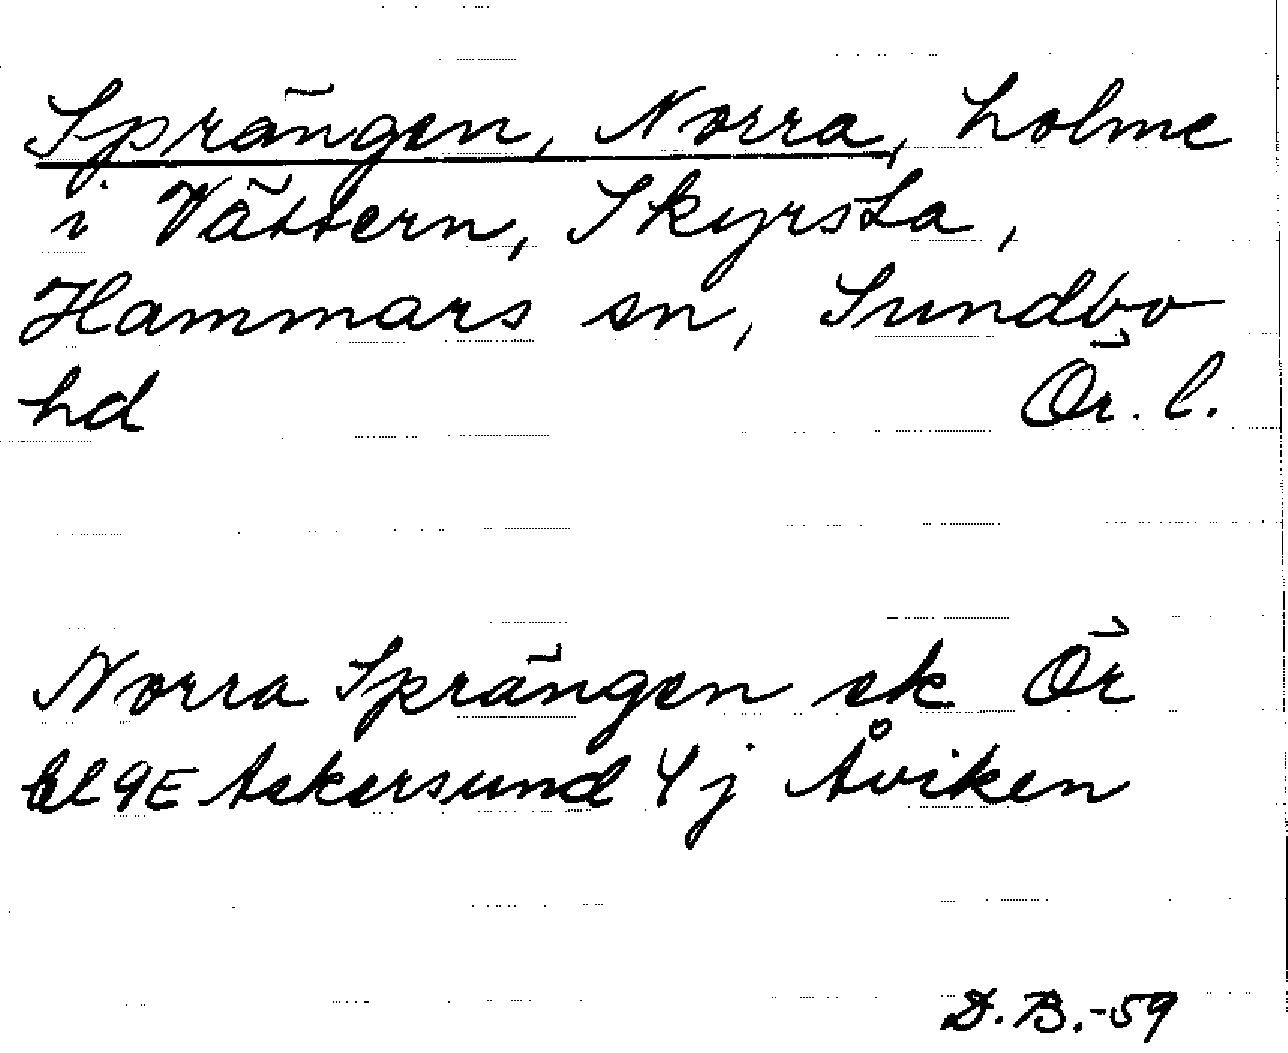 Sprängen, Norra, holme
i Vättern, Skyrsta,
Hammars sn, Sundbo
hd Ör. l.
Norra Sprängen ek Ör
bl 9E Askersund 4j Åviken
D.B.-59